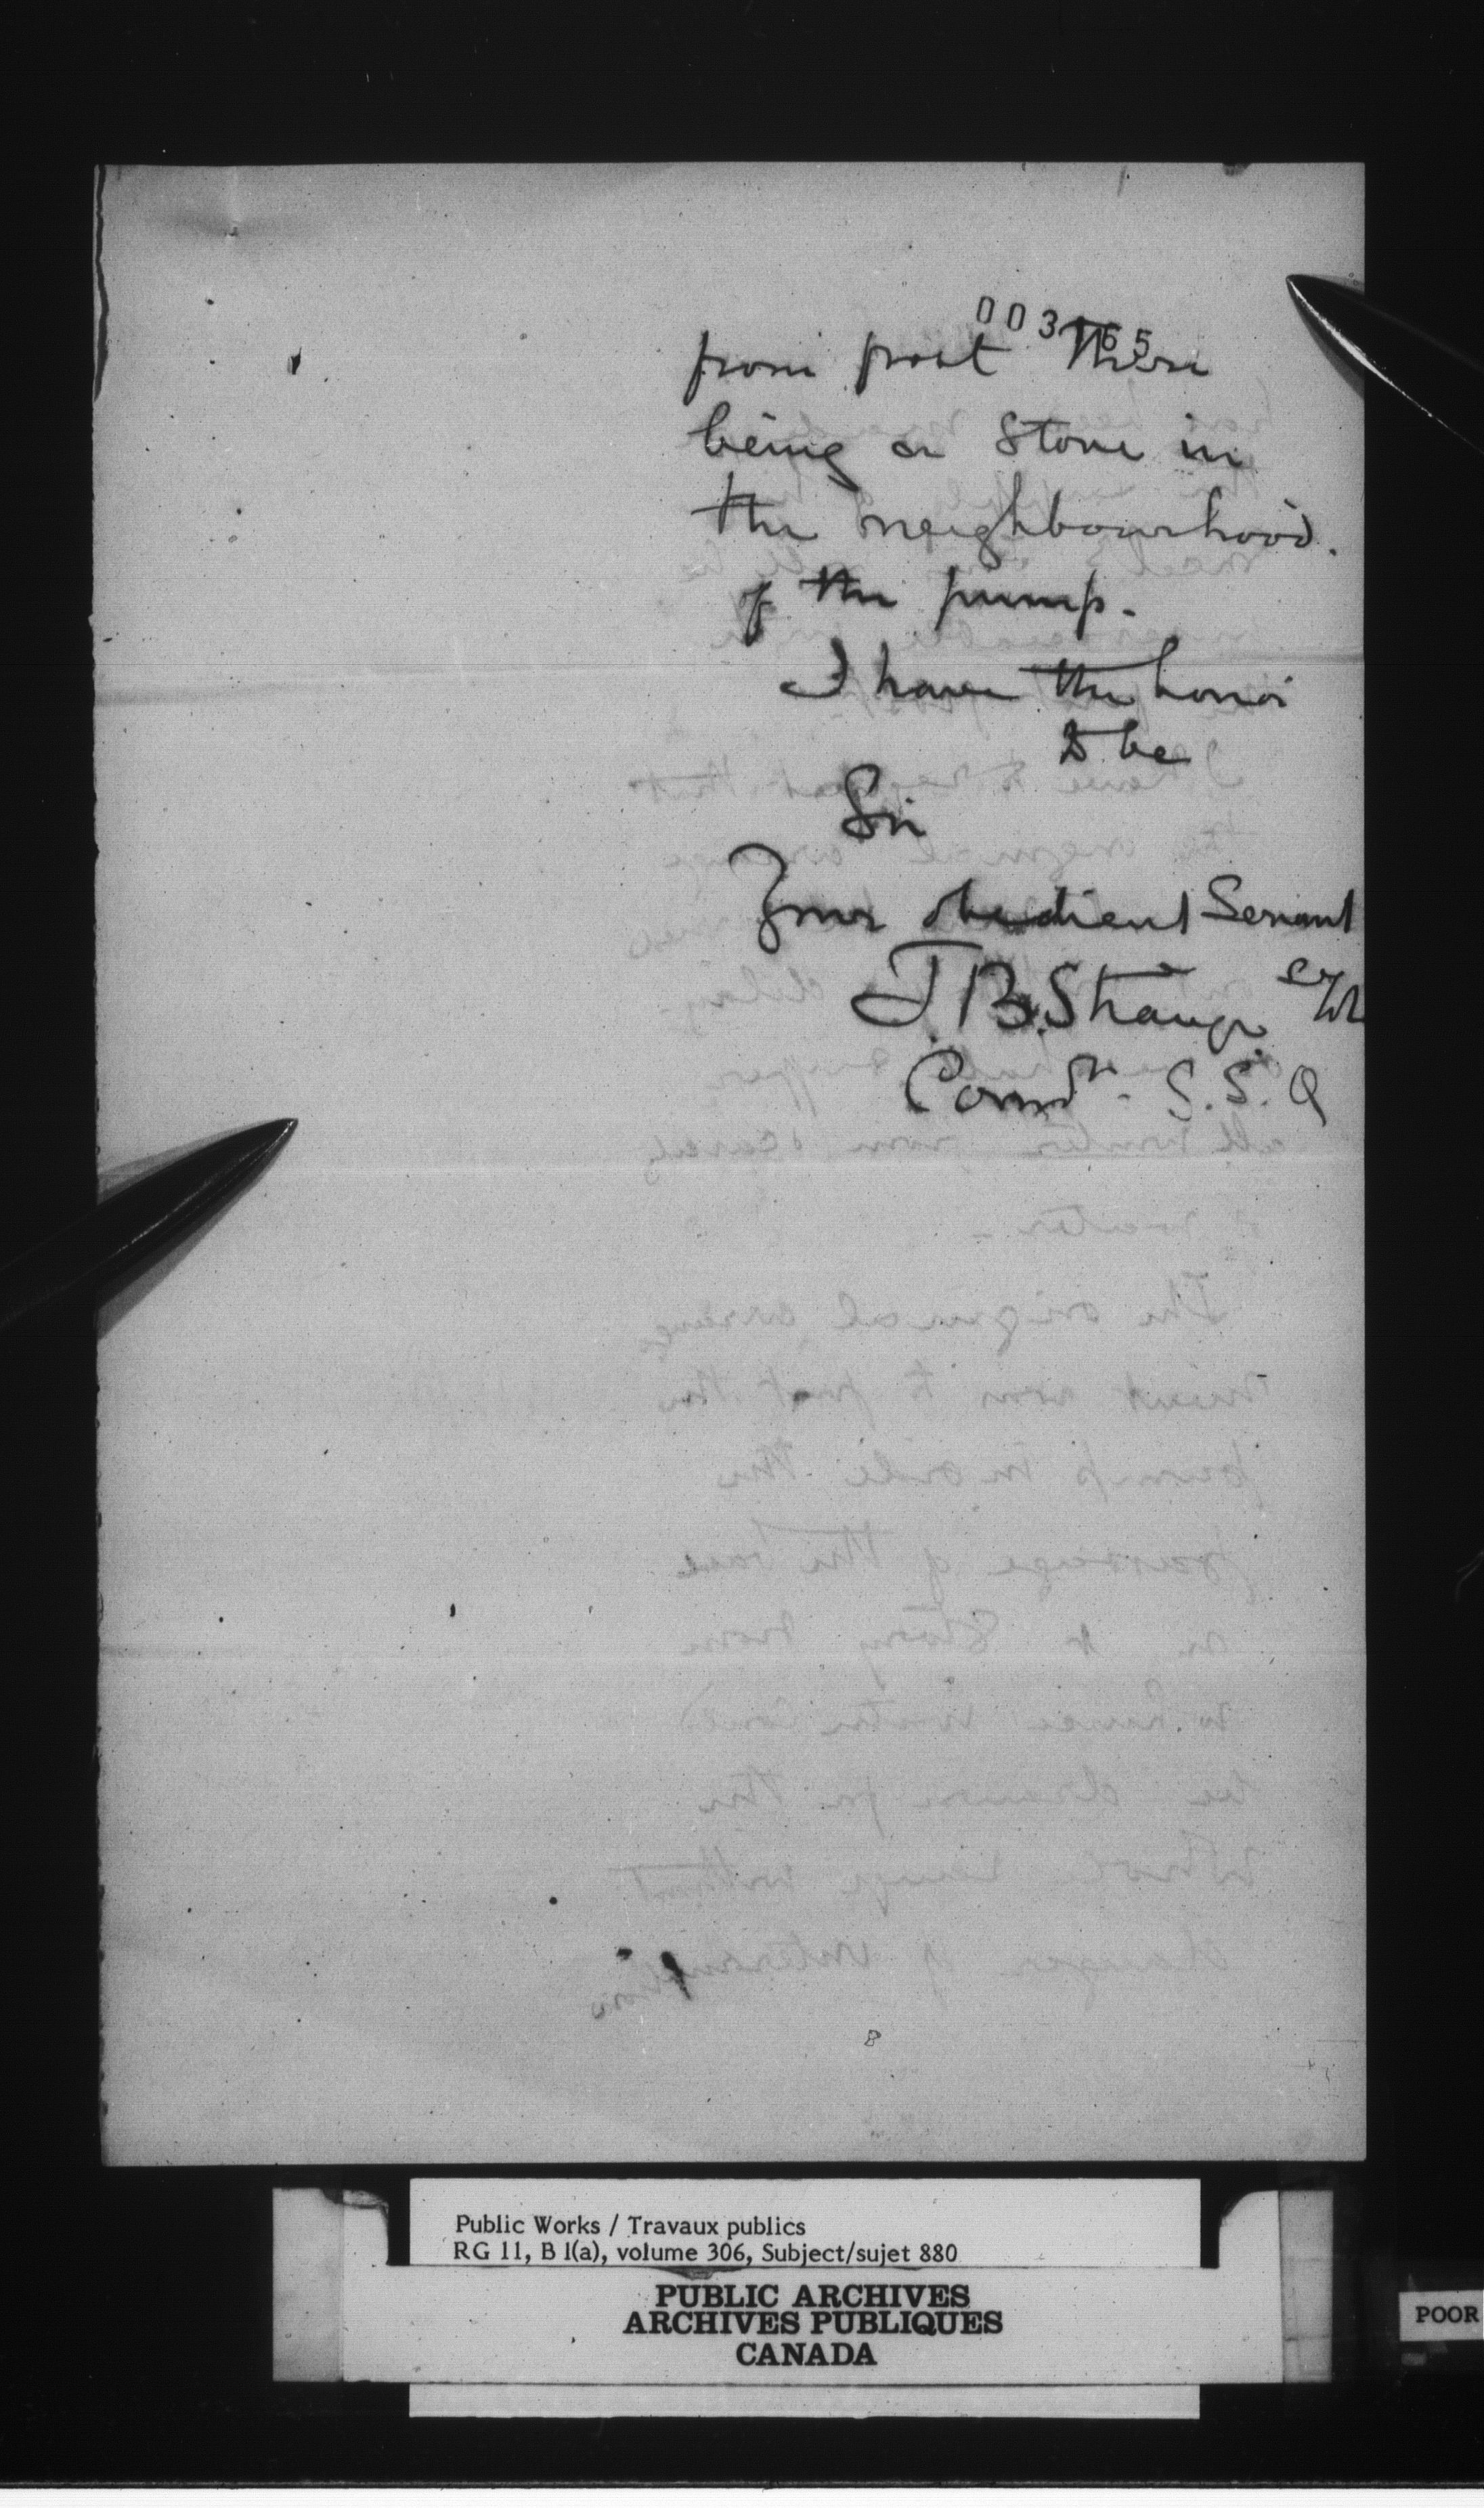 003165
from frost there
being a stove in
the neighbourhood.
of the pump.
I have the honor
to be
Sir
Your obedient Servant
T.B. Strange
Comdt. S.S. Q
Public Works / Travaux publics
RG 11, B 1(a), volume 306, Subject/sujet 880
PUBLIC ARCHIVES
ARCHIVES PUBLIQUES
CANADA
POOR